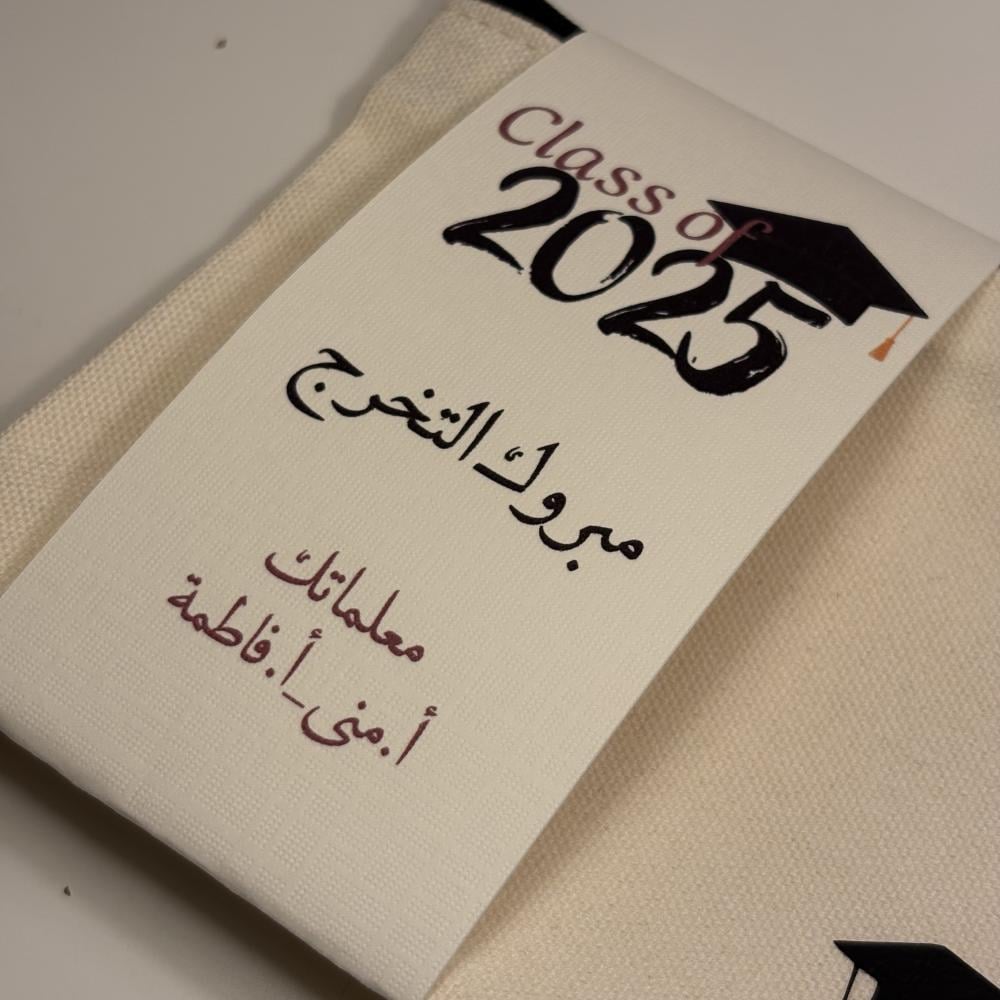 Class of
2025
مبروك التخرج
معلماتك
أ.منى_أ.فاطمة